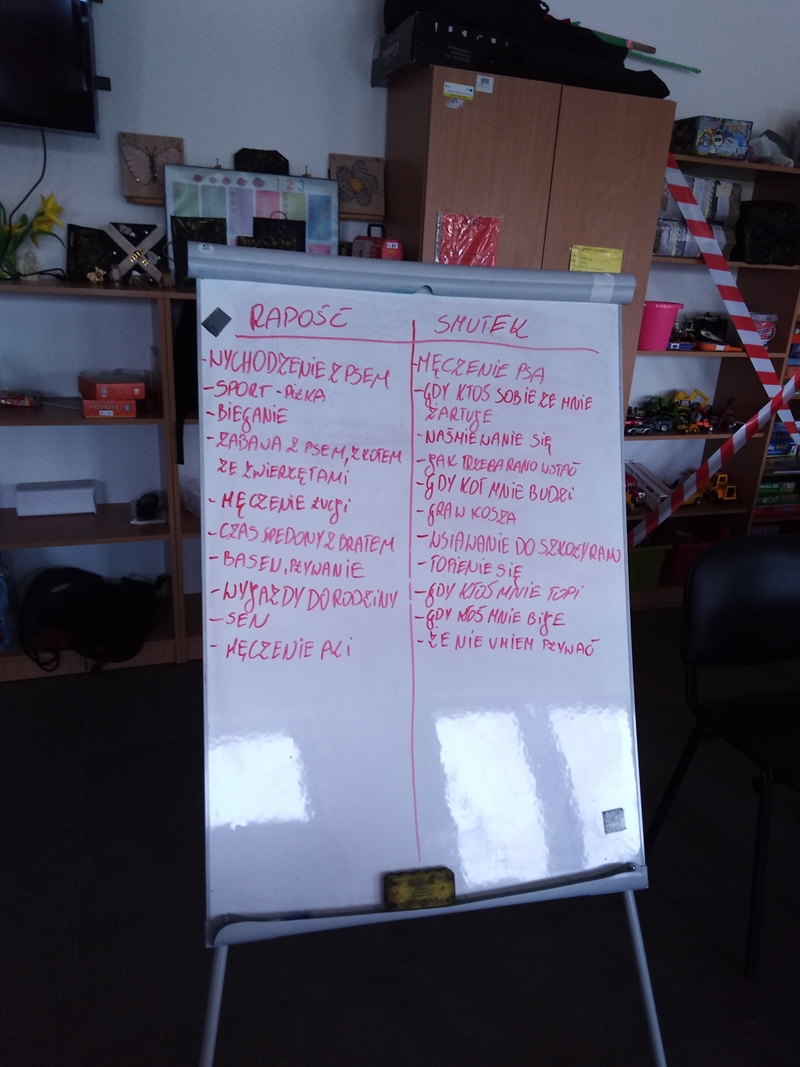 RADOŚĆ
-WYCHODZENIE Z PSEM
-SPORT-PIŁKA
-BIEGANIE
-ZABAWA Z PSEM, Z KOTEM
ZE ZWIERZĘTAMI
-MĘCZENIE ŁUCJI
-CZAS SPEDONY Z BRATEM
-BASEN, PŁYWANIE
-WYJAZDY DO RODZINY
-SEN
-MĘCZENIE ALI
SMUTEK
-MĘCZENIE PSA
-GDY KTOŚ SOBIE ZE MNIE
ŻARTUJE
-NAŚMIEWANIE SIĘ
-JAK TRZEBA RANO WSTAĆ
-GDY KOT MNIE BUDZI
-GRA W KOSZA
-WSTAWANIE DO SZKOŁY RANO
-TOPIENIE SIĘ
-GDY KTOŚ MNIE TOPI
-GDY KTOŚ MNIE BIJE
-ŻE NIE UMIEM PŁYWAĆ